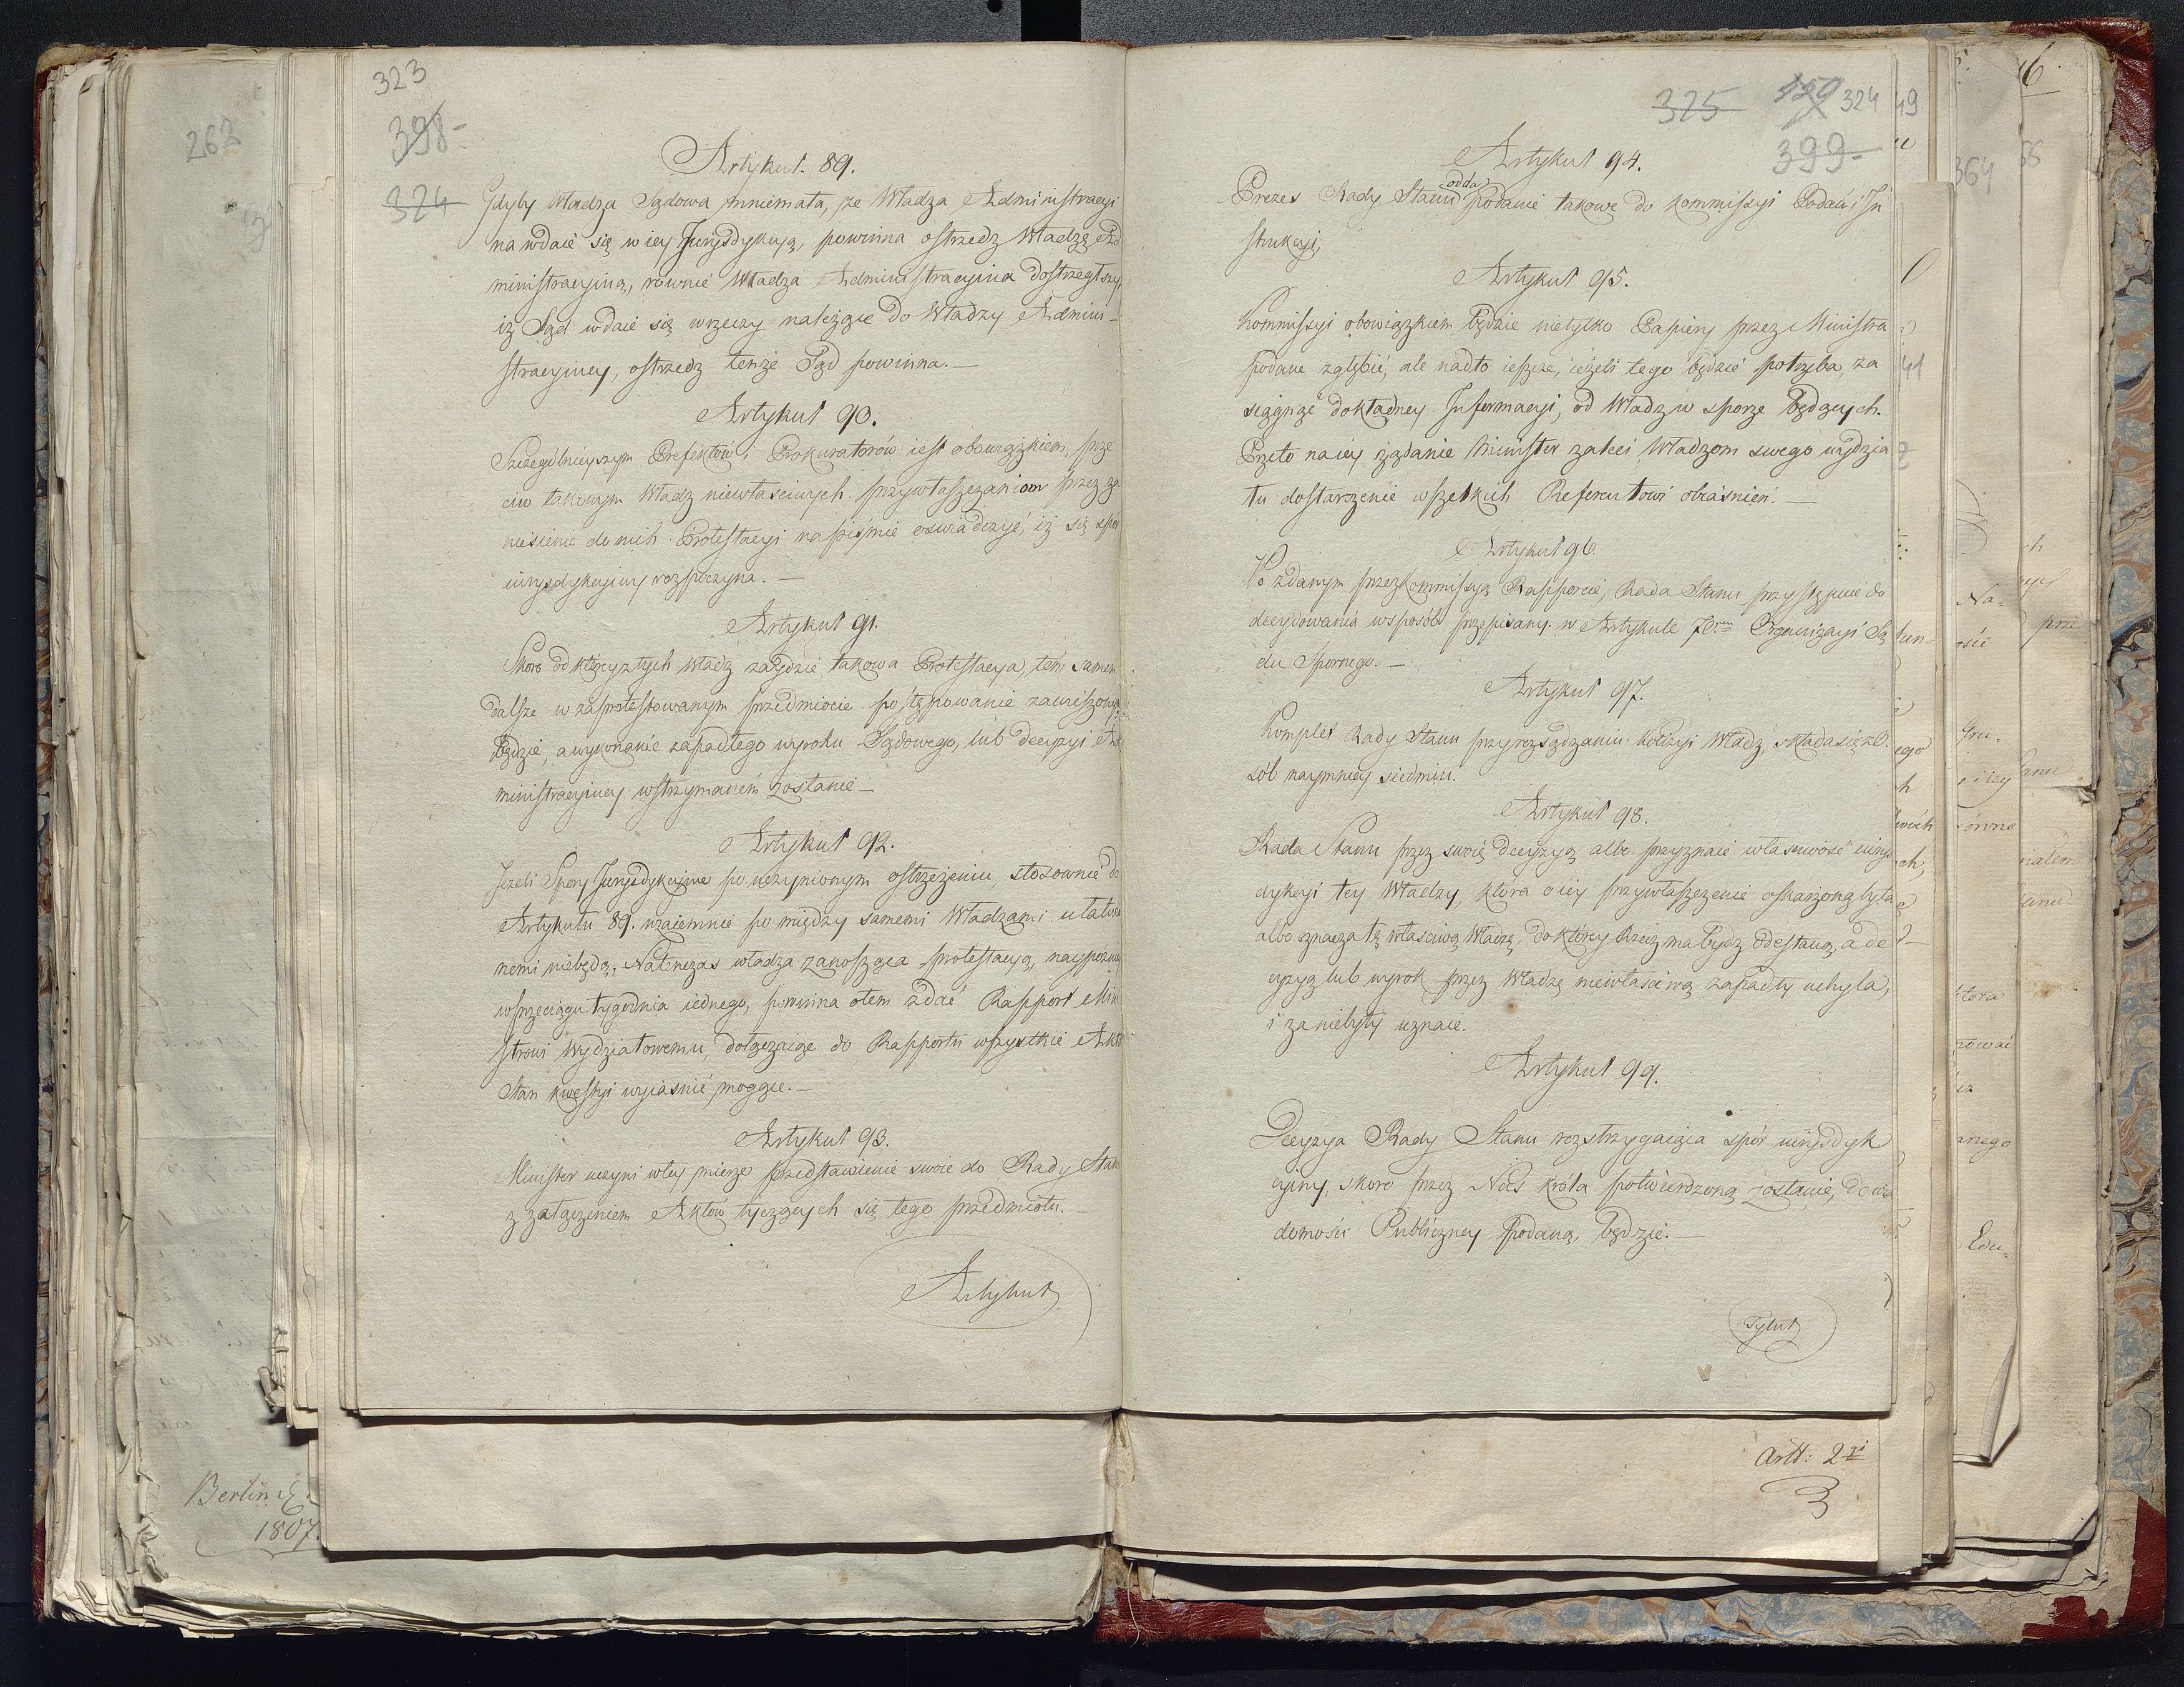 323
398
324
Artykuł. 89.
Gdyby Władza Sądowa mniemała, że Władza Administracyi
na wdaie się w iey Jurysdykcyą, powinna ostrzedz Władzę Ad
ministracyiną, rownie Władza Administracyina dostrzegłszy,
iż Sąd wdaie się w rzeczy należące do Władzy Admini-
stracyiney, ostrzedz tenże Sąd powinna.—
Artykuł 90.
Szczególnieyszym Prefektów i Prokuratorów iest obowiązkiem, prze
ciw takowym Władz niewłaściwych przywłaszczaniom przez za
niesienie do nich Protestacyi na piśmie oswiadczyć, iż się spór
iurysdykcyiny rozpoczyna.—
Artykuł 91.
Skoro od któreyztych Władz zaydzie takowa Protestacya, tém samem
dalsze w zaprotestowanym przedmiocie postępowanie zawieszonym
będzie, a wykonanie zapadłego wyroku Sądowego, lub decyzyi Ad
ministracyiney wstrzymaném zostanie—
Artykuł 92.
Jeżeli Spory Jurysdykcyine po uczynionym ostrzeżeniu, stosownie do
Artykułu 89. wzaiemnie po między samemi Władzami ułatwio
nemi niebędą, Natenczas władza zanosząca protestacyą, naypóźniey
w przeciągu tygodnia iednego, powinna otem zdać Rapport Mini
strowi Wydziałowemu, dołączaiąc do Rapportu wszystkie Akta
Stan kwestyi wyiaśnić mogące.—
Artykuł 93.
Minister uczyni wtey mierze przedstawienie swoie do Rady Stanu
z załączeniem Aktów tyczących się tego przedmiotu.—
Artykuł
325 324
399
Artykuł 94.
odda
Prezes Rady Stanu podanie takowe do kommissyi Podań i In
strukcyi,
Artykuł 95.
Kommissyi obowiązkiem będzie nietylko Papiery przez Ministra
podane zgłębić, ale nadto ieszcze, ieżeli tego będzie potrzeba, za
siągnąć dokładney Informacyi, od Władz w sporze będących.
Przeto na iey żądanie Minister zaleci Władzom swego wydzia
łu dostarczenie wszelkich Referentowi obiaśnień.—
Artykuł 96.
Po zdanym przez Kommissyą Rapporcie, Rada Stanu przystępuie do
decydowania wsposób przepisany w Artykule 70.ym Organizacyi Są
du Spornego.—
Artykuł 97.
Komplet Rady Stanu przy rozsądzaniu Kolizyi Władz, składa się z O-
sób naymniey siedmiu.
Artykuł 98.
Rada Stanu przez swoię decyzyą albo przyznaie własciwość iurys
dykcyi tey Władzy, która o iey przywłaszczenie oskarżoną była
albo oznacza tę właściwą Władzę, do którey Rzecz ma bydź odesłaną, a de
cyzyą lub wyrok przez Władzę niewłaściwą zapadły uchyla,
i za niebyły uznaie.
Artykuł 99.
Decyzya Rady Stanu rozstrzygaiąca spór iurysdyk
cyiny, skoro przez Nas Króla potwierdzoną zostanie, do wia
domości Publiczney podaną będzie.—
Tytuł
Artt: 2gi
262
Berlin
1807.
364